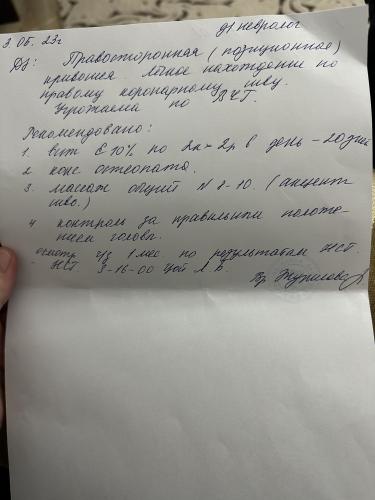 9.06.23г д/невролог
Дз: Правосторонная (позиционное)
кривошея. Лёгкое нахождение по
правому коронарному шву.
Угрожаема по ВЧГ.
Рекомендовано:
1. вит Е 10% по 2к × 2р в день - 20 дней
2 конс остеопата.
3. массаж общий N 8-10. (акцент
шво.)
4 контроль за правильным положе-
нием головы.
осмотр ч/з 1 мес по результатам НСГ.
НСГ 9-16-00 Цой Л.В.
Вр.